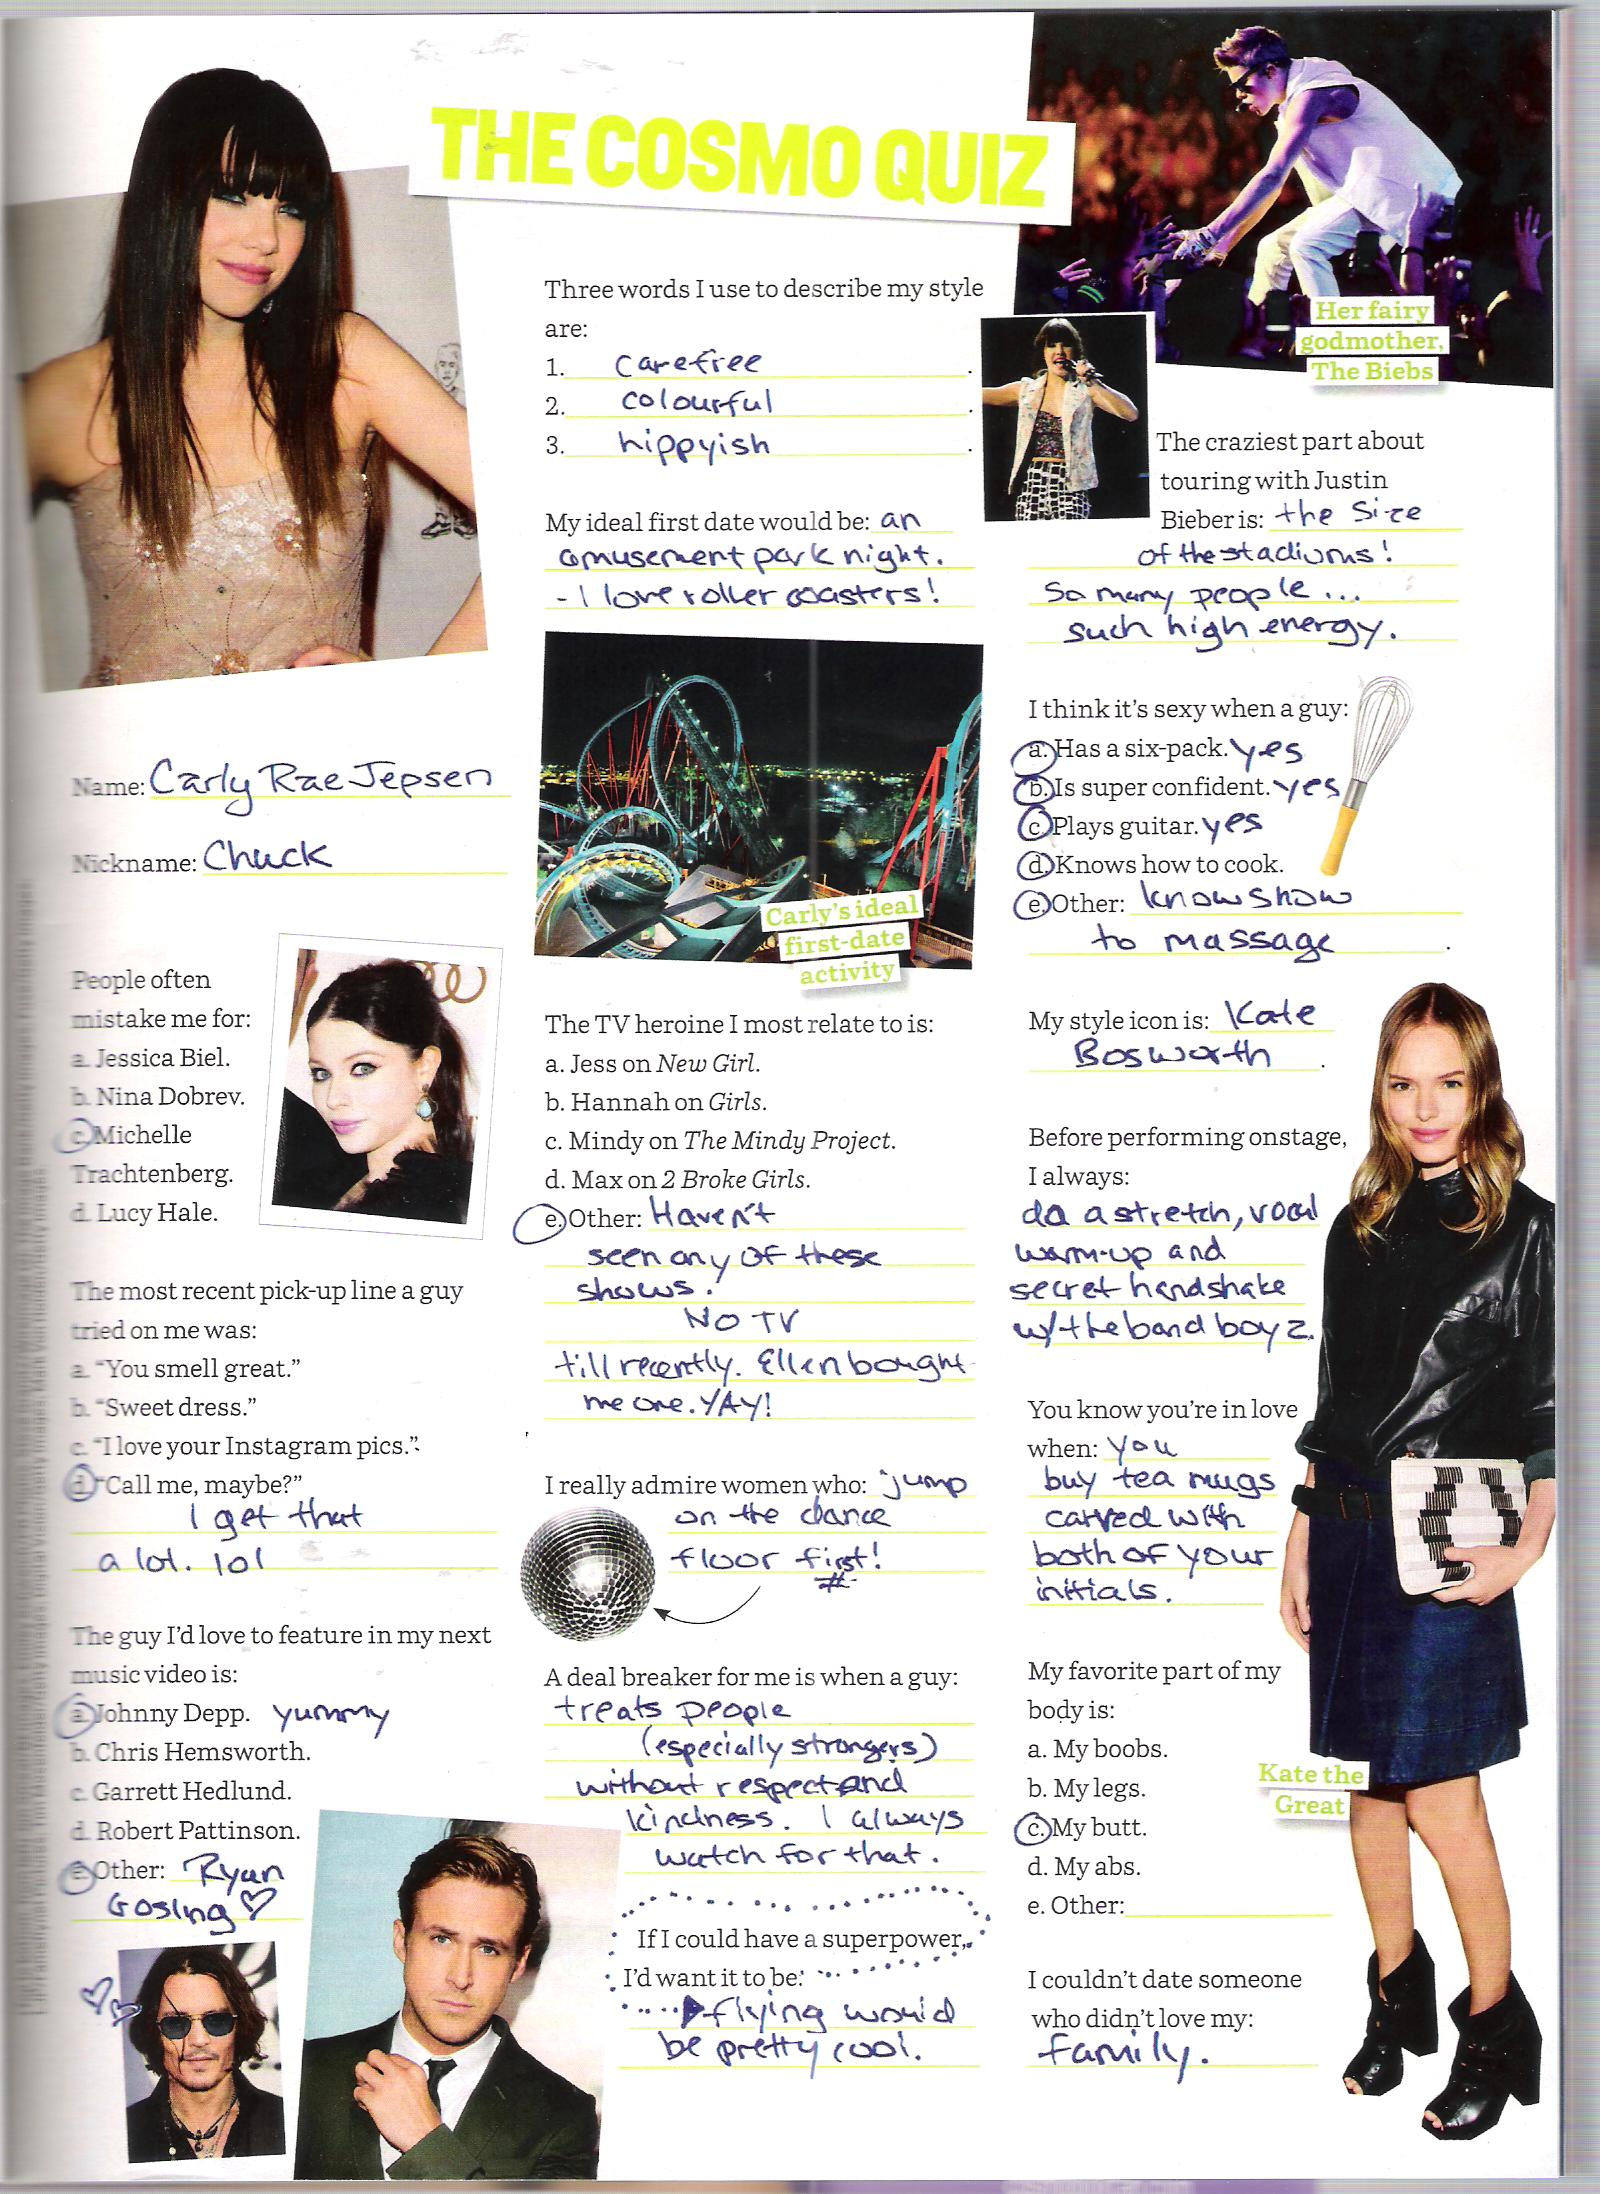 THE COSMO QUIZ
Name: Carly Rae Jepsen
Nickname: Chuck
People often
mistake me for:
a. Jessica Biel.
b. Nina Dobrev.
c. Michelle
Trachtenberg.
d. Lucy Hale.
The most recent pick-up line a guy
tried on me was:
a. “You smell great.”
b. “Sweet dress.”
c. “I love your Instagram pics.”
d. “Call me, maybe?”
I get that
a lot. lol
The guy I’d love to feature in my next
music video is:
a. Johnny Depp. yummy
b. Chris Hemsworth.
c. Garrett Hedlund.
d. Robert Pattinson.
e. Other: Ryan
Gosling
Three words I use to describe my style
are:
1. carefree.
2. colourful.
3. hippyish.
My ideal first date would be: an
amusement park night.
- I love roller coasters!
Carly’s ideal
first-date
activity
The TV heroine I most relate to is:
a. Jess on New Girl.
b. Hannah on Girls.
c. Mindy on The Mindy Project.
d. Max on 2 Broke Girls.
e. Other: Haven't
seen any of these
shows.
NO TV
till recently. Ellen bought
me one. YAY!
I really admire women who: jump
on the dance
floor first!
A deal breaker for me is when a guy:
treats people
(especially strangers)
without respect and
kindness. I always
watch for that.
If I could have a superpower,
I’d want it to be:
flying would
be pretty cool.
Her fairy
godmother,
The Biebs
The craziest part about
touring with Justin
Bieber is: the size
of the stadiums!
So many people...
such high energy.
I think it’s sexy when a guy:
a. Has a six-pack. yes
b. Is super confident. yes
c. Plays guitar. yes
d. Knows how to cook.
e. Other: knows how
to massage.
My style icon is: Kate
Bosworth.
Before performing onstage,
I always:
do a stretch, vocal
warm-up and
secret handshake
w/ the band boyz.
You know you’re in love
when: you
buy tea mugs
carved with
both of your
initials.
My favorite part of my
body is:
a. My boobs.
b. My legs.
c. My butt.
d. My abs.
e. Other:
Kate the
Great
I couldn’t date someone
who didn’t love my:
family.